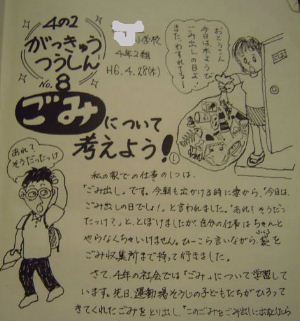 4の2
がっきゅう
つうしん
No.8
小学校
4年2組
H6.4.28(木)
おとうさん
今日は木ようび
ごみ出しの日よ!
きた、わすれてるー
ごみについて
考えよう!①
あれ?
そうだったっけ
私の家での仕事の1つは、
「ごみ出し」です。今朝も出かける時に妻から、「今日は、
ごみ出しの日でしょ!」と言われました。「あれ!そうだ
ったっけ?」と、とぼけましたが、自分の仕事はちゃんと
やらなくちゃいけません。ひーこら言いながら袋を
ごみ収集所まで持って行きました。
さて、4年の社会では「ごみ」について学習して
います。先日、運動場そうじの子どもたちがひろって
きてくれたごみをとり出し、「このごみをごみ出しに出したら